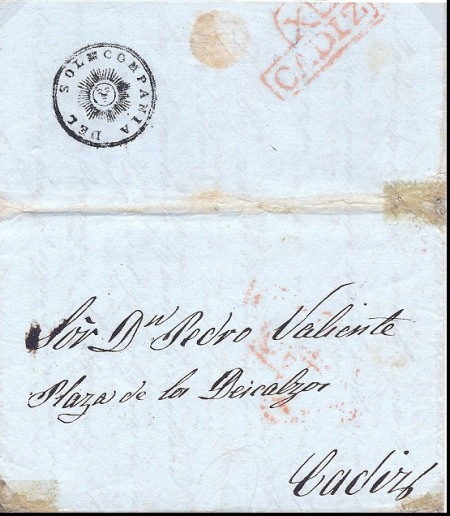 COMPAÑIA DEL SOL
CADIZ
Sór Dn Pedro Valiente
Plaza de los Descalzos
Cadiz